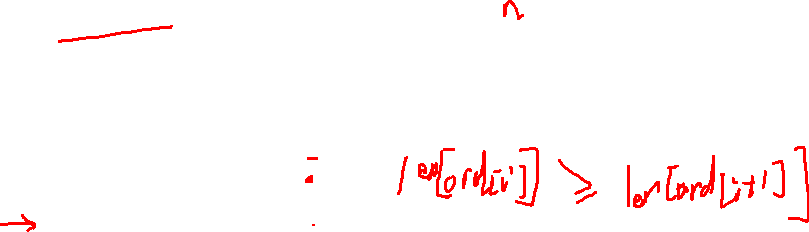 n
len[ord[i]] ⩾ len[ord[i+1]]